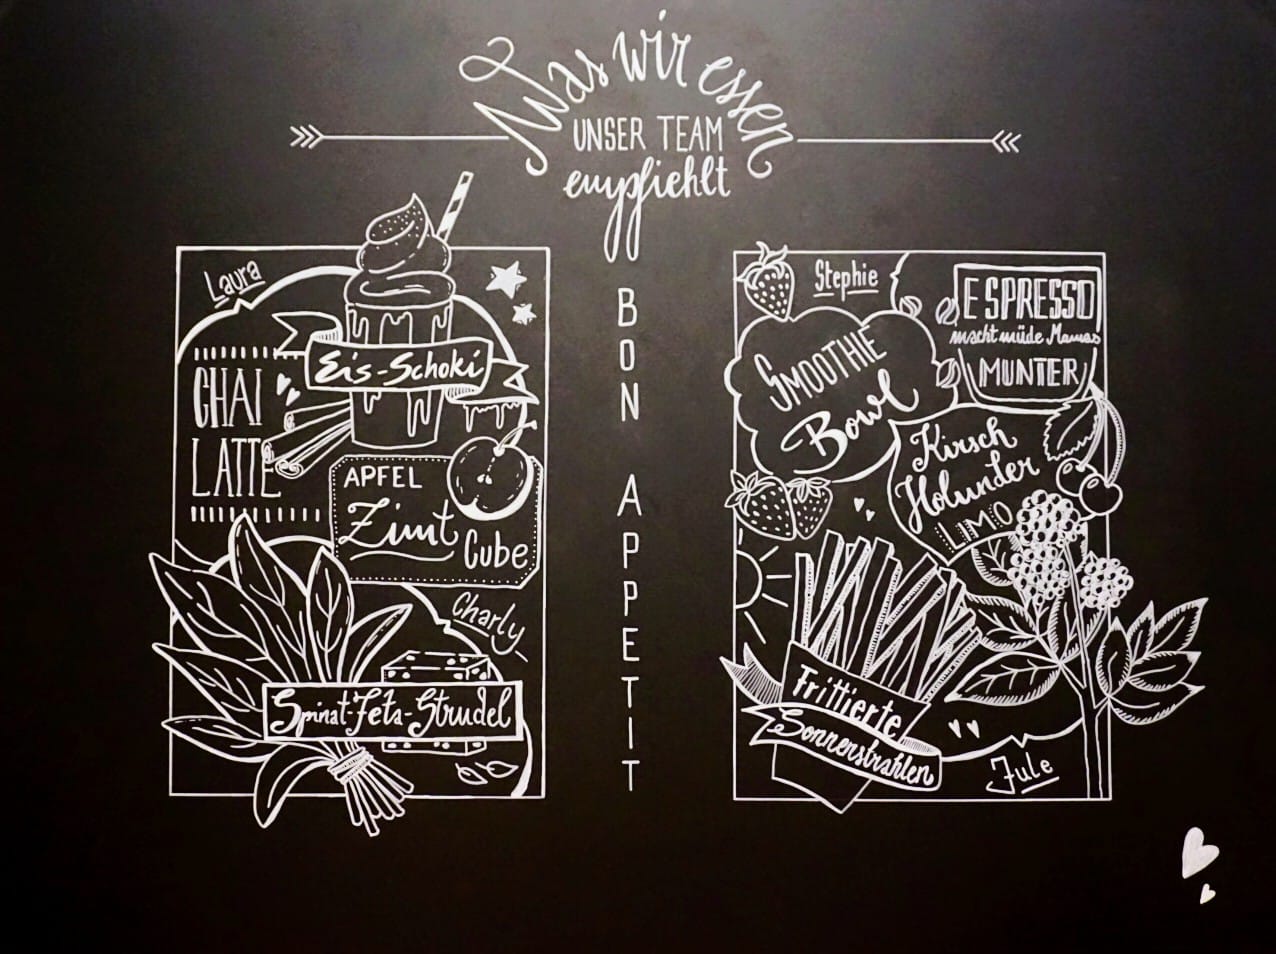 Was wir essen
UNSER TEAM
empfiehlt
BON APPETIT
Laura
Eis-Schoki
CHAI
LATTE
APFEL
Zimt
Cube
Charly
Spinat-Feta-Strudel
Stephie
ESPRESSO
macht müde Mamas
MUNTER
SMOOTHIE
Bowl
Kirsch
Holunder
LIMO
Frittierte
Sonnenstrahlen
Jule